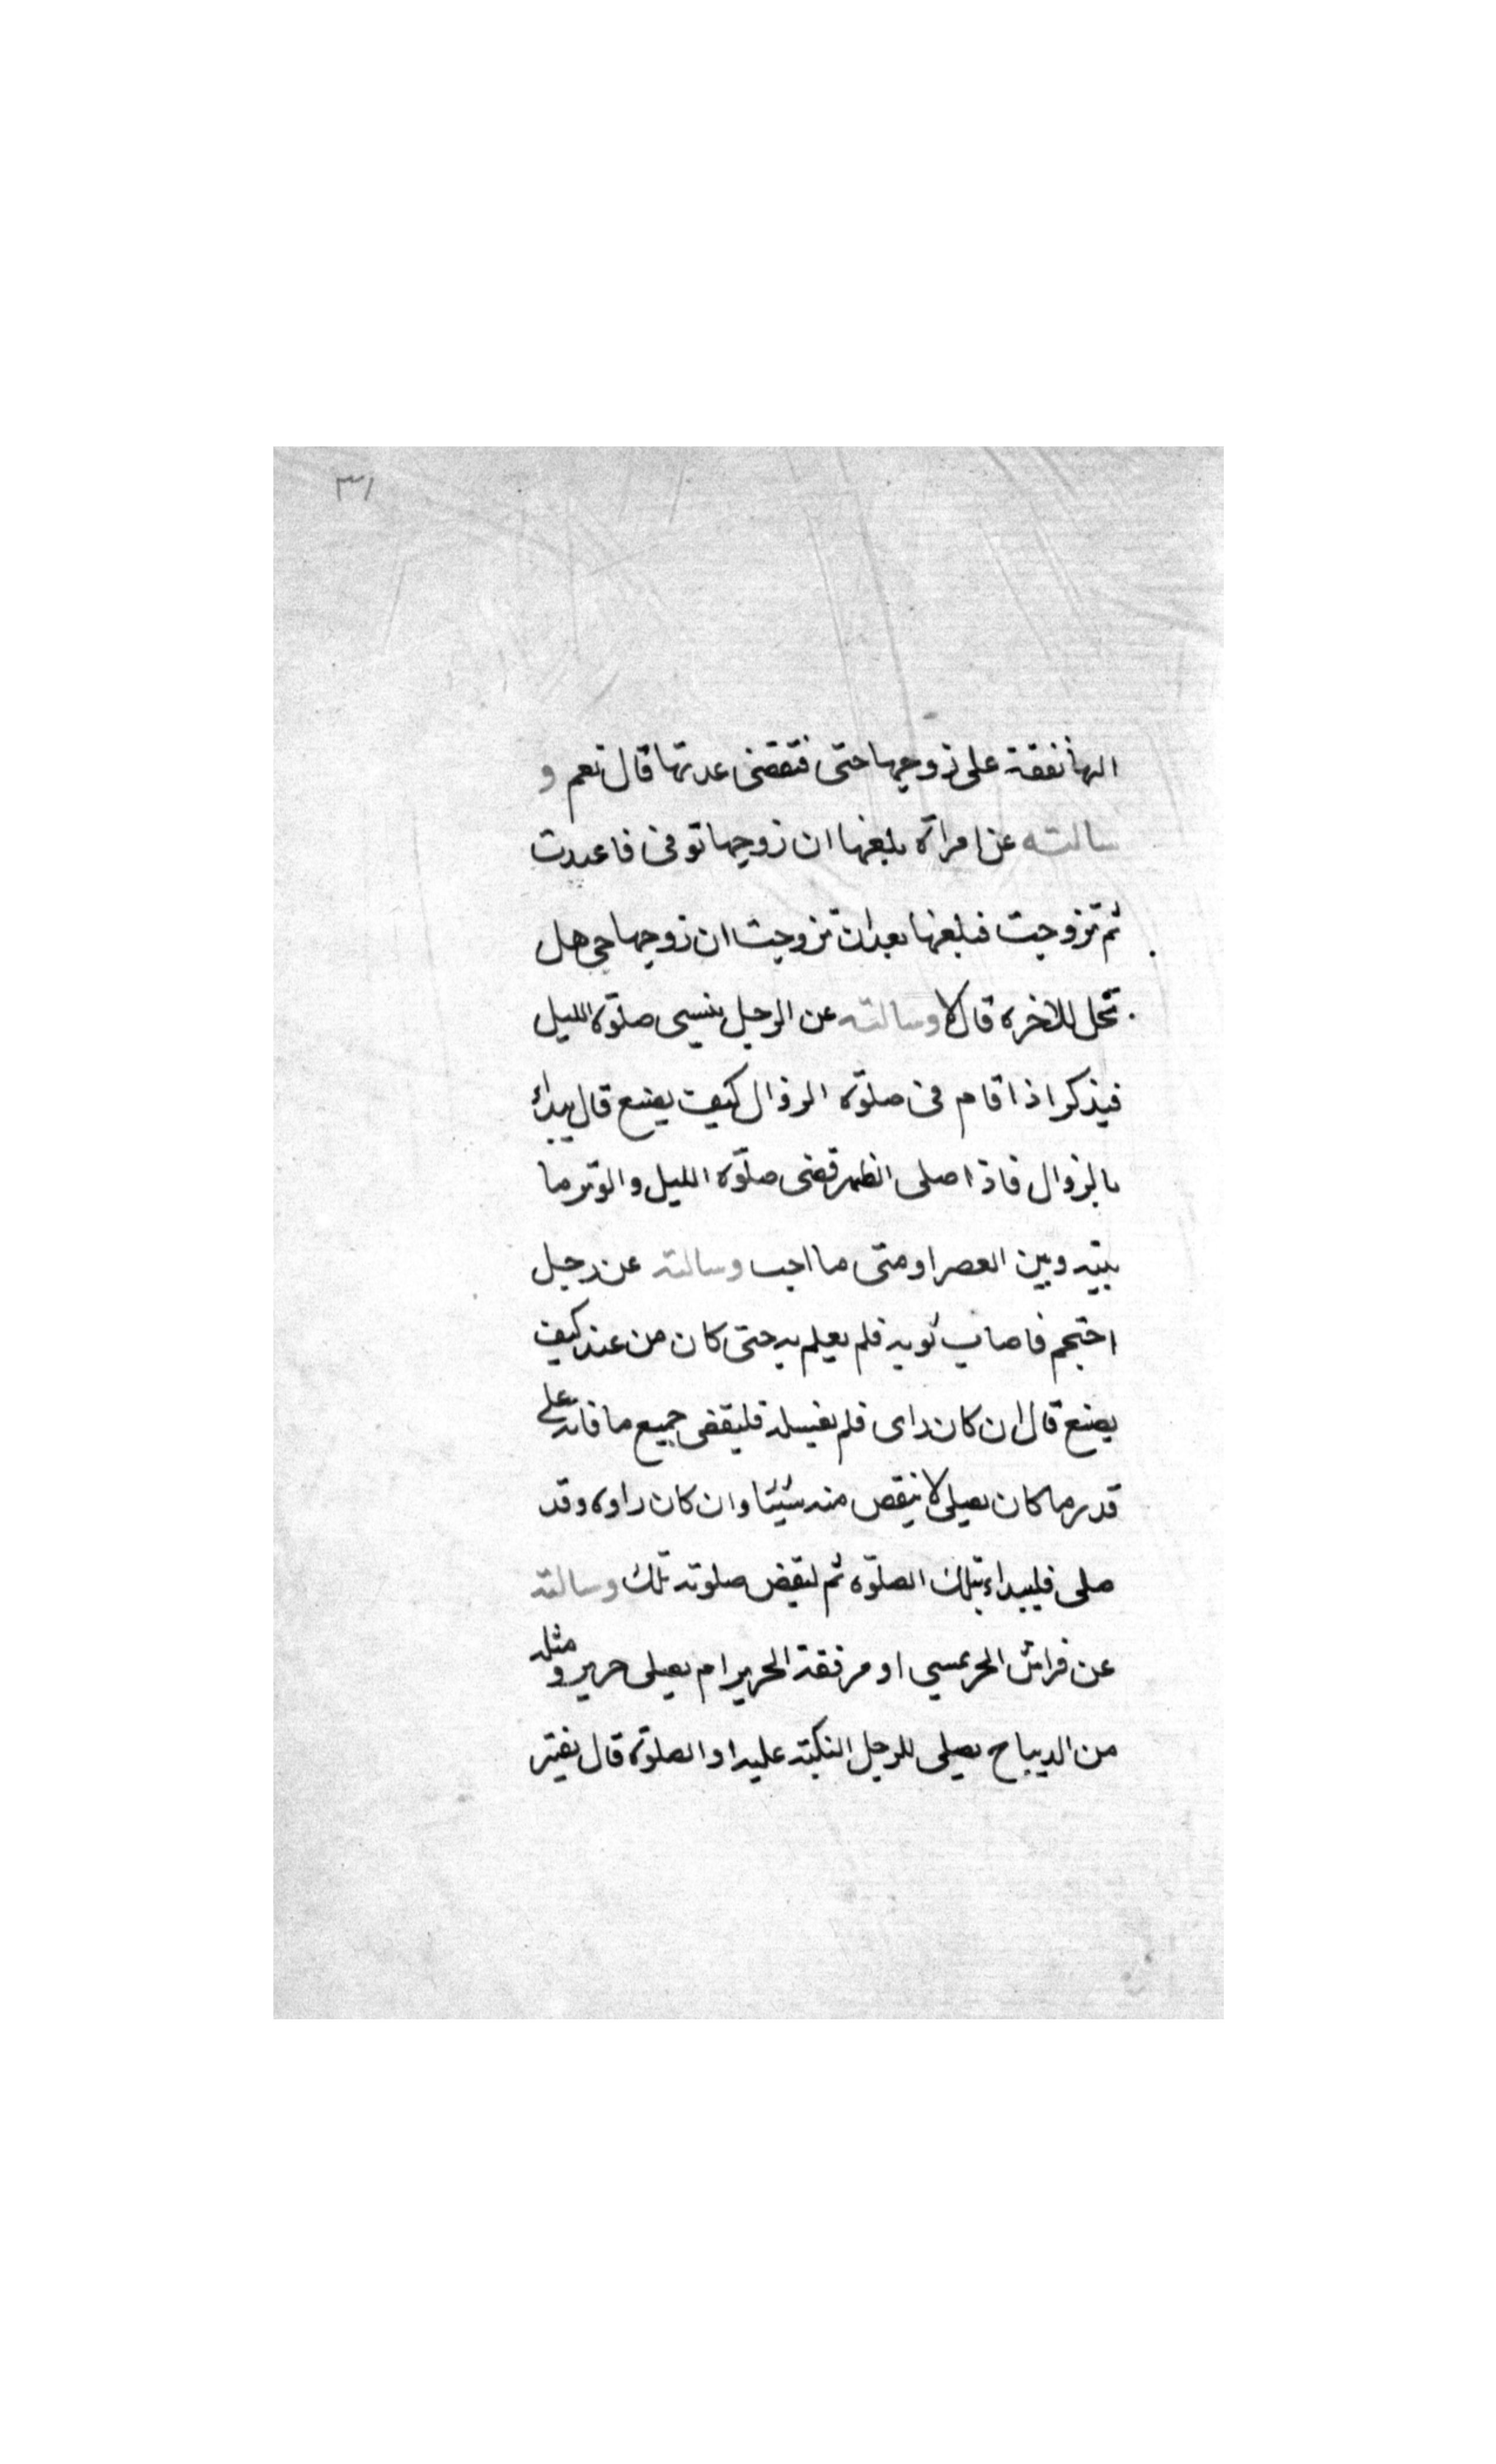 ٣١
الها نفقة على زوجها حتى تنقضى عدتها قال نعم و
سالته عن امراة بلغها ان زوجها توفى فاعدت
ثم تزوجت فبلغها بعد ان تزوجت ان زوجها حى هل
تحل للاخر قال لا وسالته عن الرجل ينسى صلوة الليل
فيذكر اذا قام فى صلوة الزوال كيف يصنع قال يبداء
بالزوال فاذا صلى الظهر قضى صلوة الليل والوتر ما
بينه وبين العصر او متى ما احب وسالته عن رجل
احتجم فاصاب ثوبه فلم يعلم به حتى كان من غد كيف
يصنع قال ان كان راى فلم يغسله فليقضى جميع ما فاته على
قدر ما كان يصلى لا ينقص منه شيئا وان كان راوه وقد
صلى فليبداء بتلك الصلوة ثم ليقض صلوته تلك وسالته
عن فراش الحر او مرفقة الحرير ام يصلى حرير و مثله
من الديباح يصلى للرجل عليه او الصلوة قال